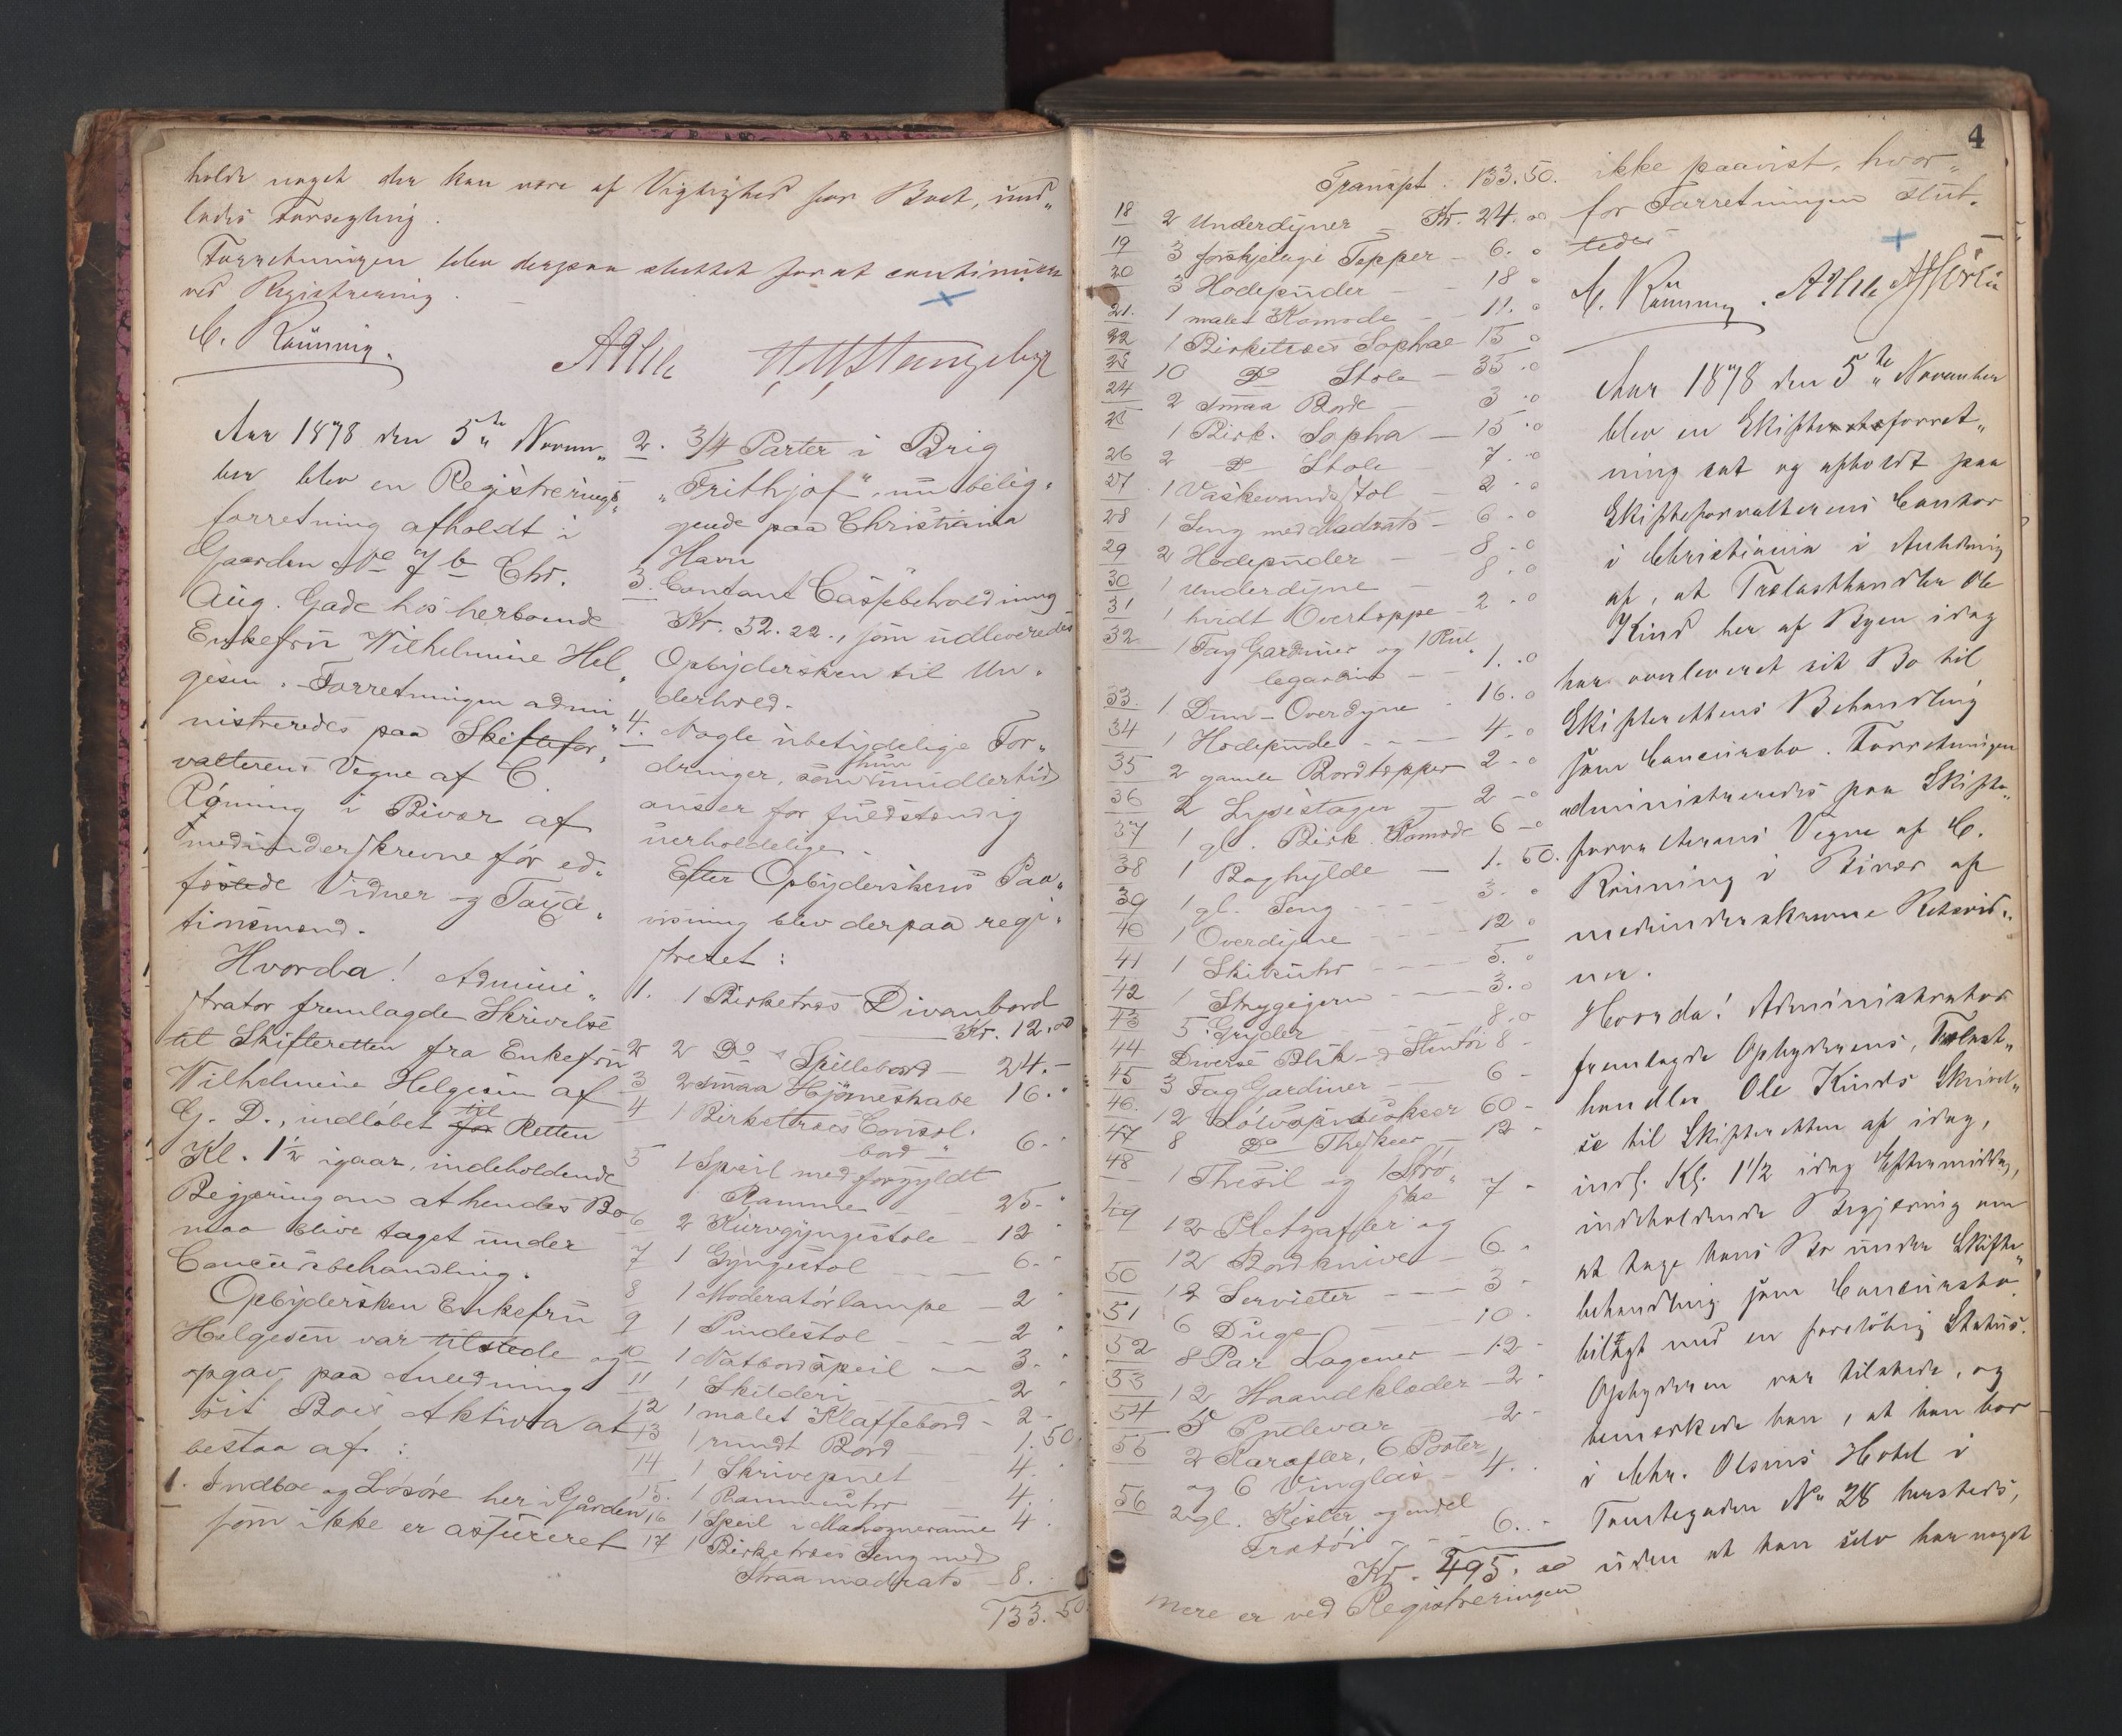 holde noget der kan være af Vigtighed for Boet, und„
lades Forsegling.
Forretningen blev derpaa sluttet for at continuere
ved Registrering.
C. Rønning.
Aar 1878 den 5te Novem„
ber blev en Registrerings„
forretning afholdt i
Gaarden No 7b Chr.
Aug. Gade hos herboende
Enkefru Wilhelmine Hel„
gesen. Forretningen admi„
nistreredes paa Skiftefor„
valterens Vegne af C.
Rønning i Bivær af
medunderskrevne før ed„
fæstede Vidner og Taxa„
tionsmænd.
Hvorda! Admini„
strator fremlagde Skrivelse
til Skifteretten fra Enkefru
Wilhelmine Helgesen af
G. D., indløbet til for Retten
Kl. 1½ igaar, indeholdende
Begjæring om at hendes Bo
maa blive taget under
Concursbehandling.
Opbydersken Enkefru
Helgesen var tilstede og
opgav paa Anledning
sit Boes Aktiva at
bestaa af:
1. Indboe og Løsøre her i Gården
som ikke er assureret
2. 3/4 Parter i Brig
„Frithjof“, nu belig„
gende paa Christiania
Havn
3. Contant Cassebeholdning
Kr. 52.22., som udleveredes
Opbydersken til Un„
derhold.
4. Nogle ubetydelige For„
dringer, som hun imidlertid
anser for fuldstændig
uerholdelige.
Efter Opbyderskens Paa„
visning blev derpaa regi„
streret:
1. 1 Birketræs Divanbord
Kr. 12.00
2 2 Do Spillebord — 24.-
3 2 smaa Hjørneskabe 16.-
4 1 Birketræes Consol„
bord - 6.-
5 1 Speil med forgyldt
Ramme — 25.-
6 2 Kurvgyngestole - 12
7 1 Gyngestol — 6.-
8 1 Moderatørlampe - 2
9 1 Pindestol — 2
10 1 Natbordspeil — 3.
11 1 Skilderi — 2
12 1 malet Klaffebord - 2
13 1 rundt Bord 1.50.
14 1 Skrivepult 4.
15. 1 4.
16 1 Speil i Mahogneramme 4.
17 1 Birketræes Seng med
Straamadrats - 8.
133.50
4
Transpt. 133.50.
18 2 Underdyner — Kr. 24.00
19 3 forskjelige Tepper - 6.0
20 3 Hodepuder — 18 0
21. 1 malet Komode — 11.0
22 1 Birketræes Sophae 15 0
23 10 Do Stole — 35.0
24 2 smaa Borde — 3.0
25 1 Birk. Sopha — 15.0
26 2 Do Stole 7.0
27 1 Vaskevandsstol — 2.0
28 1 Seng med Madrats - 6.0
29 2 Hodepuder — 8.0
30 1 Underdyne — 8.0
31 1 hvidt Overteppe - 2.0
32 1 Fag Gardiner og 1 Rul„
legardin — 1.0
33. 1 Dun-Overdyne - 16.0
34 1 Hodepude — 4.0
35 2 gamle Bordtepper 2-0
36 2 Lysestager — 2-0
37 1 gl. Birk. Komode 6-0
38 1 Boghylde — 1.50.
39 1 gl. Seng — 3.0
40 1 Overdyne — 12 0
41 1 5.0
42 1 Strygejern — 3.0
43 5 Gryder — 8.0
44 Diverse Blik- Stentøi 8-
45 3 Fag Gardiner — 6-
46. 12 Sølvspiseskeer 60-
47 8 Do Theskeer — 12-
48 1 Thesil og 1 Strø„
ske 7-
49 12 Pletgafler og
12 Bordknive — 6.-
50 12 Servieter — 3-
51 6 Duge — 10-
52 8 Par Lagener — 12-
53 12 Haandklæder — 2-
54 5 Pudevar — 2-
55 2 Karafler, 6 Porter
og 6 Vinglas — 4.
56 2 gl. Kister og endel
Trætøi — 6.-
Kr. 495.00
Mere er ved Registreringen
ikke paavist, hvor„
for Forretningen slut„
tedes
C. Rønning.
Aar 1878 den 5te November
blev en Skifteretsforret„
ning sat og afholdt paa
Skifteforvalterens Contor
i Christiania i Anledning
af, at Trælasthandler Ole
Kind her af Byen idag
har overleveret sit Bo til
Skifterettens Behandling
som Concursbo. Forretningen
administreredes paa Skifte„
forvalterens Vegne af C.
Rønning i Bivær af
medunderskrevne Retsvid„
ner.
Hvorda! Administrator
fremlagde Opbyderens, Trælast„
handler Ole Kinds Skrivel„
se til Skifteretten af idag,
indl. Kl. 1 1/2 idag Eftermiddag,
indeholdende Begjæring om
at tage hans Bo under Skifte„
behandling som Concursbo
bilagt med en foreløbig Status.
Opbyderen var tilstede, og
bemerkede han, at han bor
i Chr. Olsens Hotel i
Tomtegaden No 28 hersteds,
uden at han selv har noget